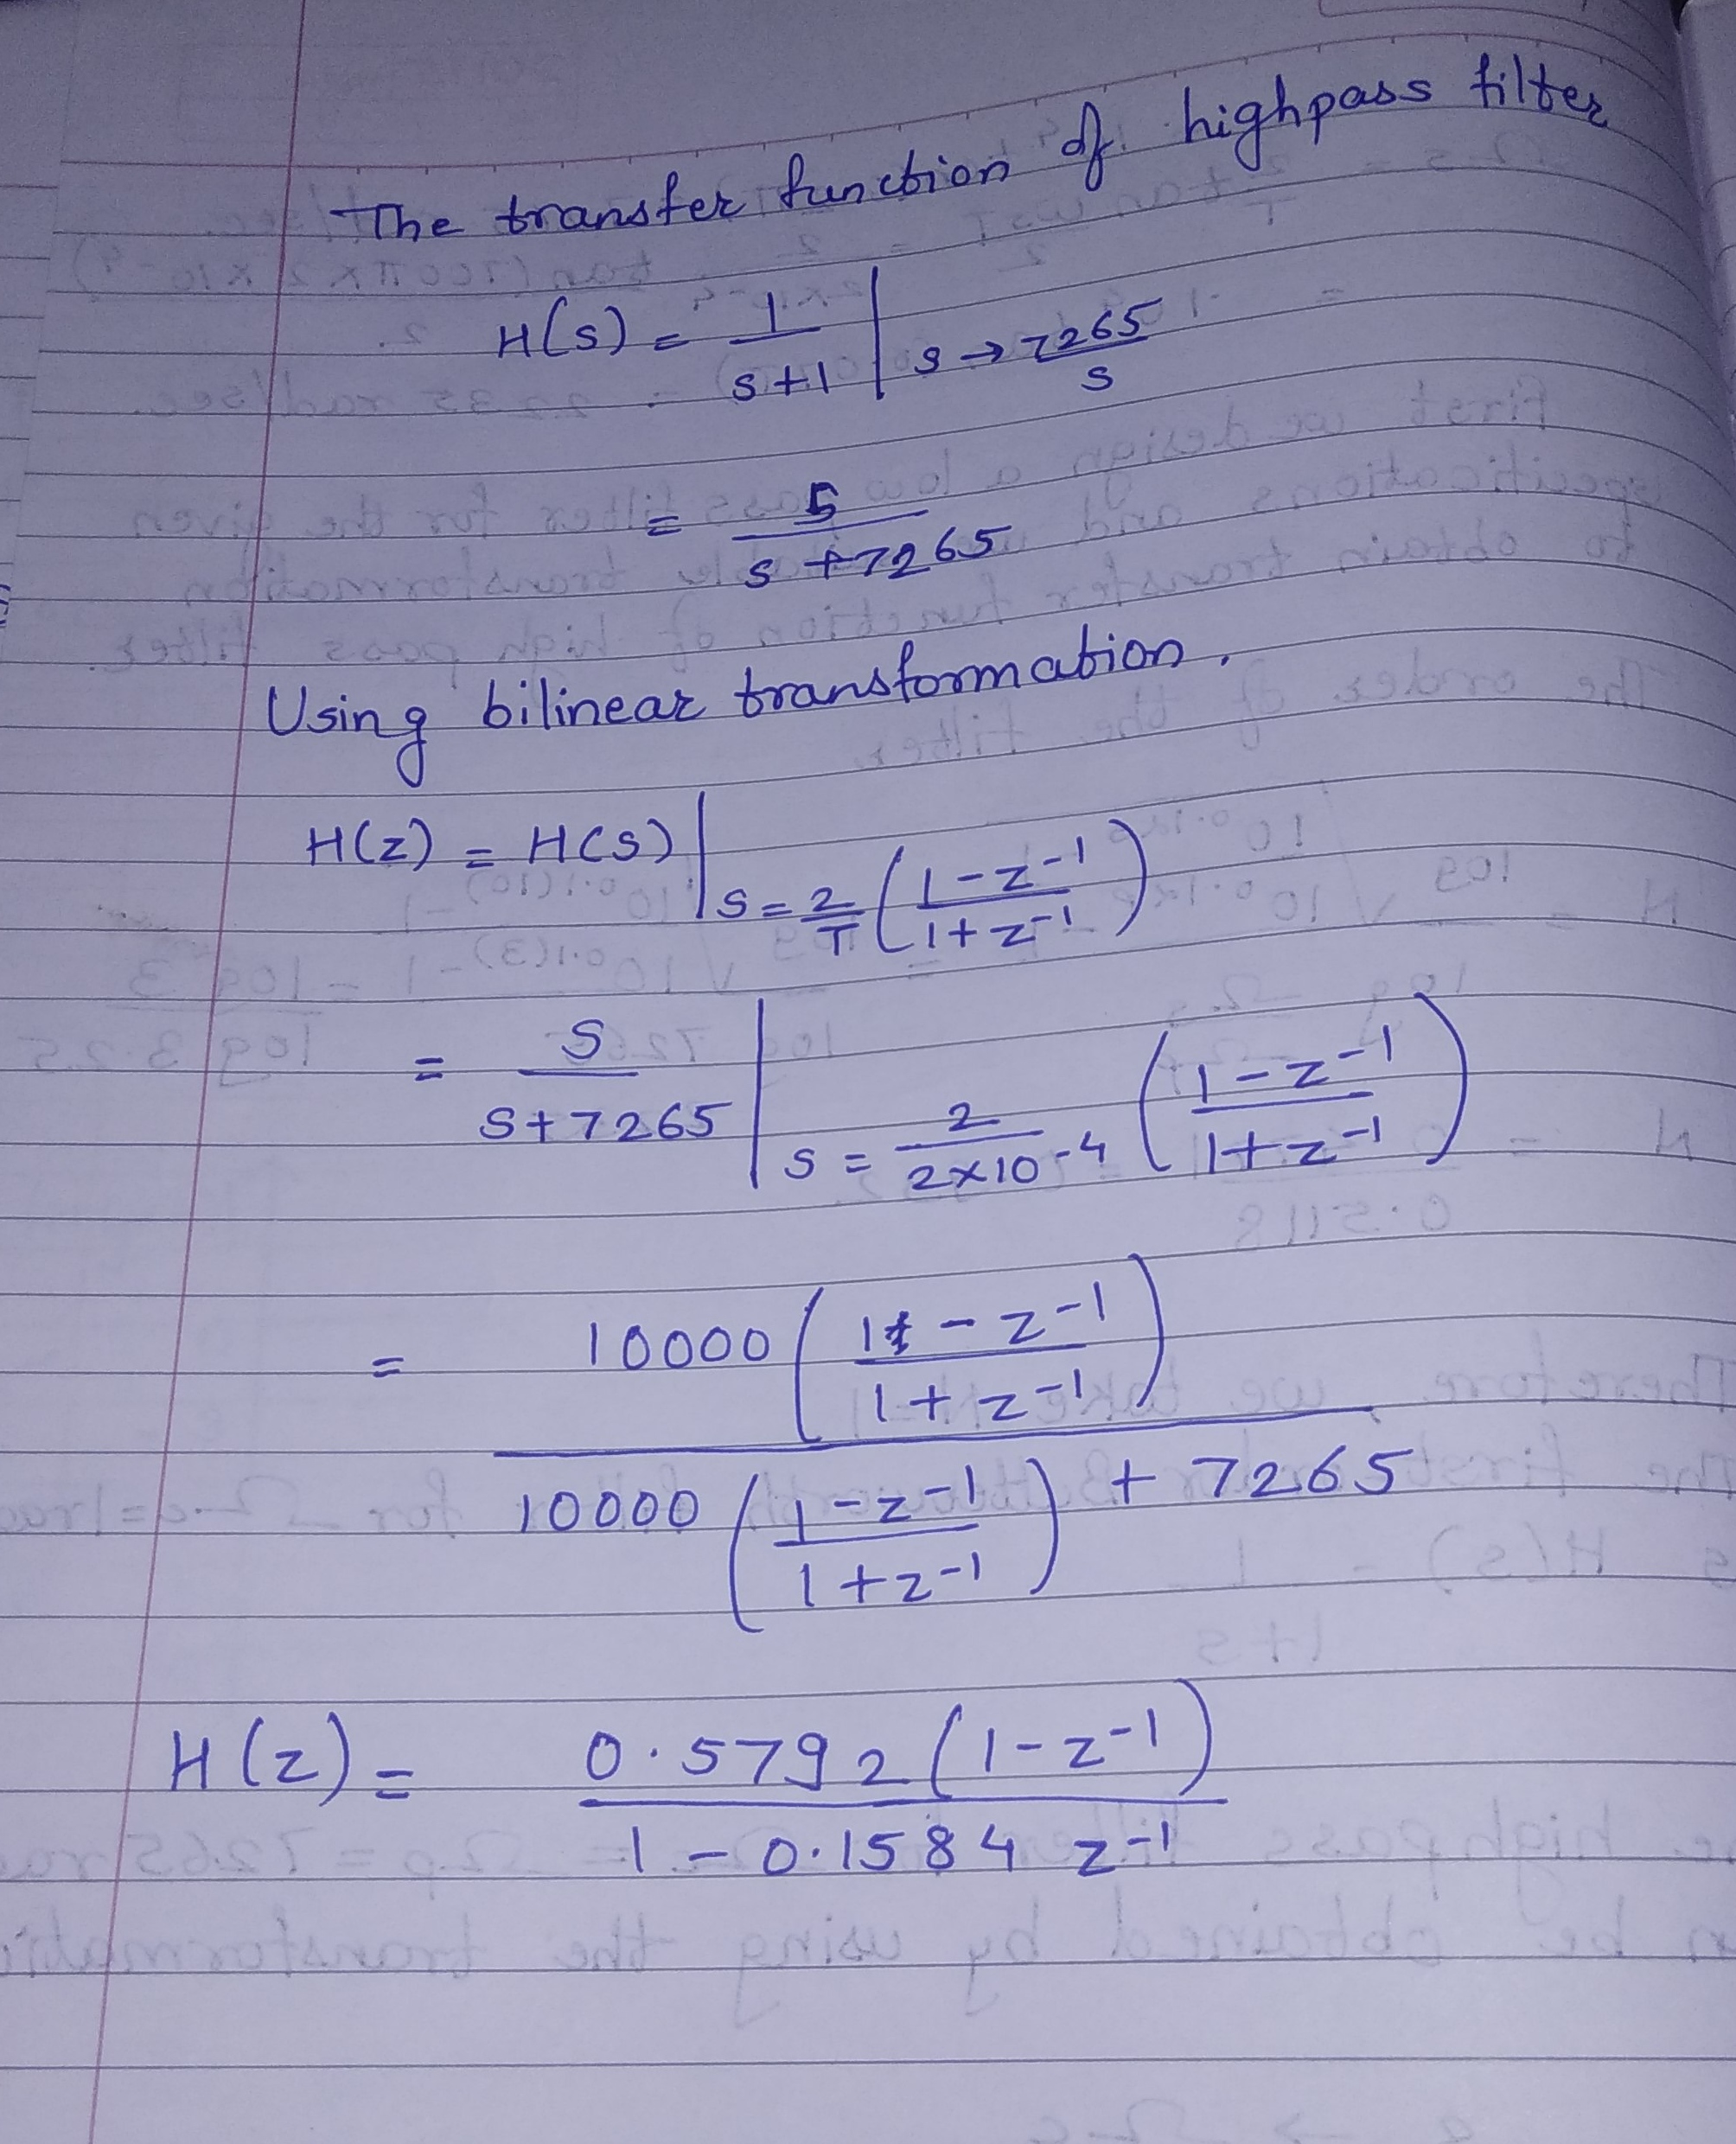 The transfer function of highpass filter
H(s) = 1/(s+1) | s → 7265/s
= s/(s+7265)
Using bilinear transformation.
H(z) = H(s) | s = 2/T ((1-z^-1)/(1+z^-1))
= s/(s+7265) | s = 2/(2×10^-4) ((1-z^-1)/(1+z^-1))
= 10000 ((1-z^-1)/(1+z^-1)) / (10000 ((1-z^-1)/(1+z^-1)) + 7265)
H(z) = 0.5792 (1-z^-1) / (1-0.1584 z^-1)